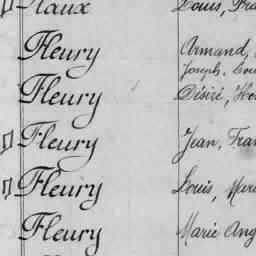 Flaux Louis, Fra
Fleury Armand,
Joseph, Lou
Fleury Désiré, Ho
Fleury Jean, Fran
Fleury Louis, Mari
Fleury Marie Ang